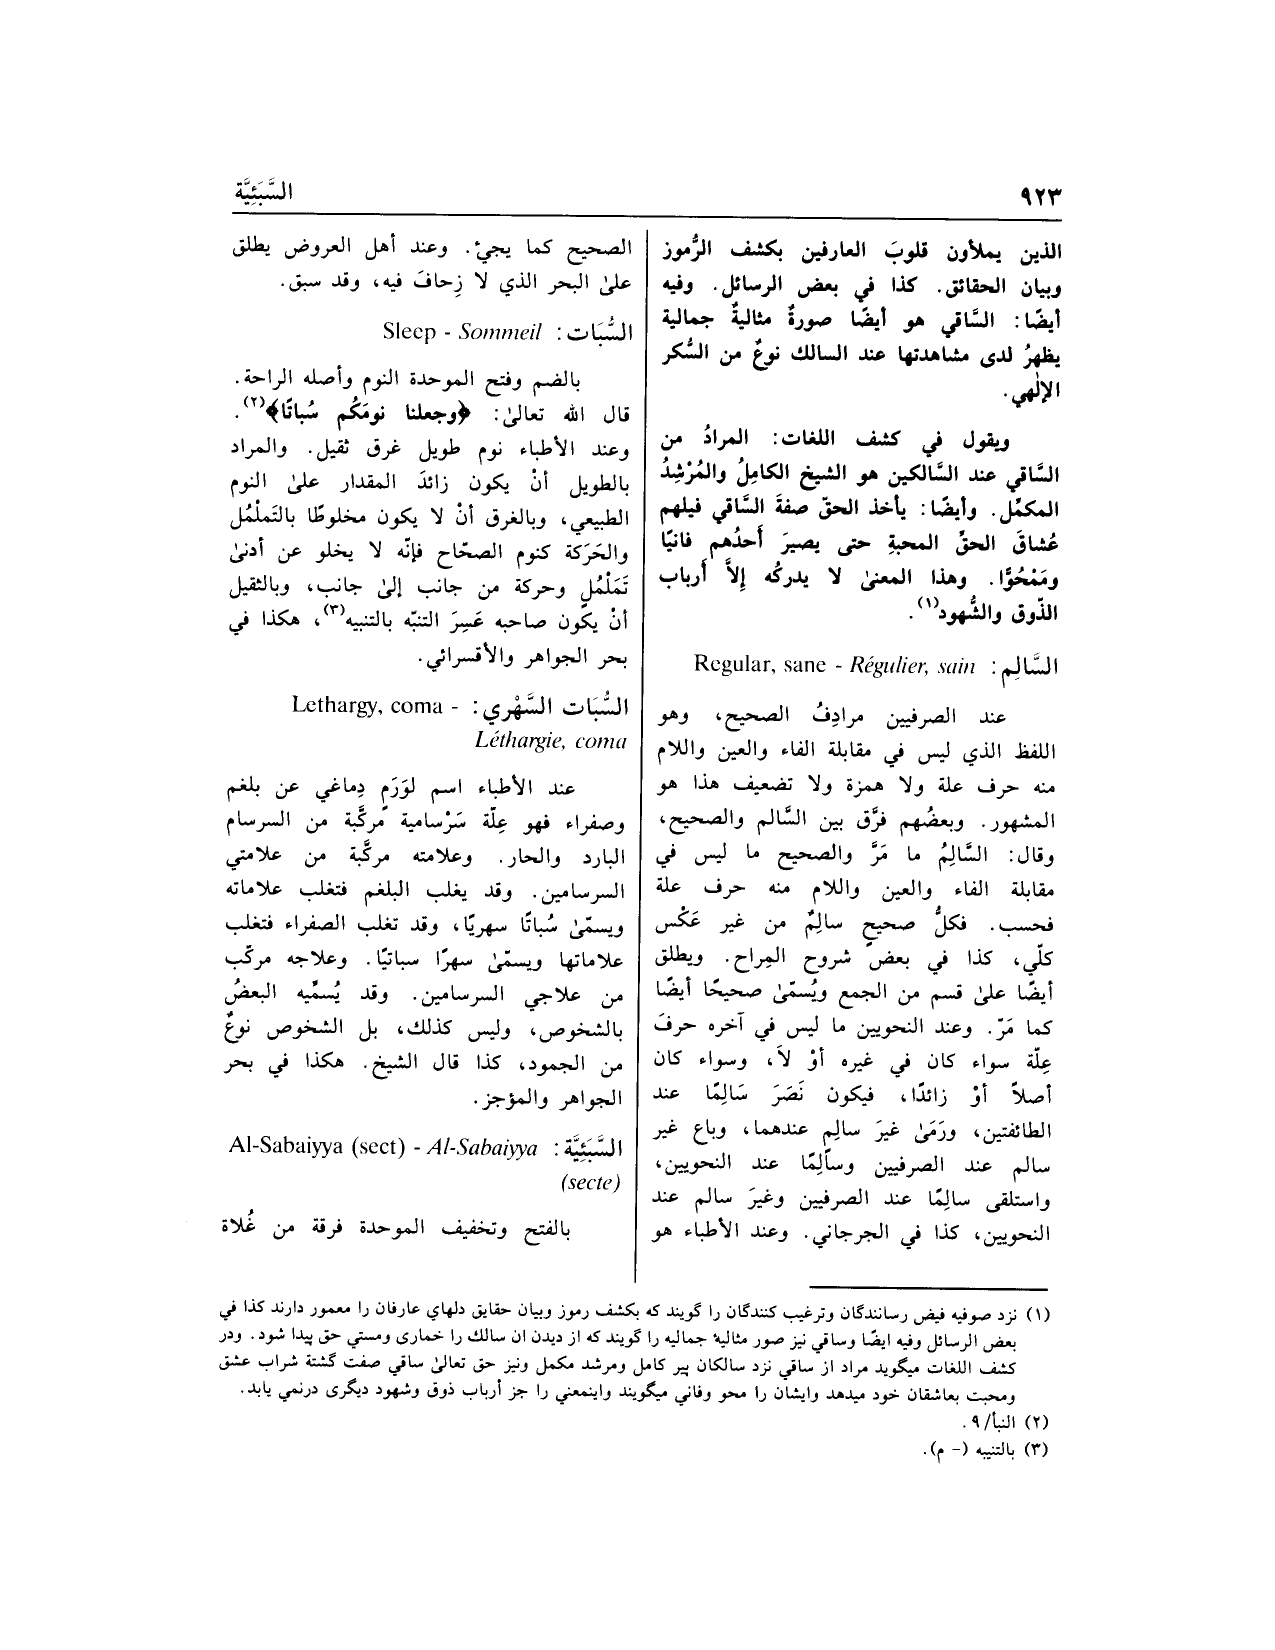 ٩٢٣
السَّبَئِيَّة
الذين يملأون قلوبَ العارفين بكشف الرُّموز
وبيان الحقائق. كذا في بعض الرسائل. وفيه
أيضًا: السَّاقي هو أيضًا صورةٌ مثاليةٌ جمالية
يظهرُ لدى مشاهدتها عند السالك نوعٌ من السُّكر
الإلٰهي.
ويقول في كشف اللغات: المرادُ من
السَّاقي عند السَّالكين هو الشيخ الكاملُ والمُرْشِدُ
المكمِّل. وأيضًا: يأخذ الحقّ صفةَ السَّاقي فيلهم
عُشاقَ الحقِّ المحبةِ حتى يصيرَ أَحدُهم فانيًا
ومَمْحُوًّا. وهذا المعنىٰ لا يدركُه إلاَّ أَرباب
الذّوق والشُّهود(١).
السَّالِم: Regular, sane - Régulier, sain
عند الصرفيين مرادِفُ الصحيح، وهو
اللفظ الذي ليس في مقابلة الفاء والعين واللام
منه حرف علة ولا همزة ولا تضعيف هذا هو
المشهور. وبعضُهم فرَّق بين السَّالم والصحيح،
وقال: السَّالِمُ ما مَرَّ والصحيح ما ليس في
مقابلة الفاء والعين واللام منه حرف علة
فحسب. فكلُّ صحيحٍ سالِمٌ من غير عَكْس
كلّي، كذا في بعض شروح المِراح. ويطلق
أيضًا علىٰ قسم من الجمع ويُسمّىٰ صحيحًا أيضًا
كما مَرّ. وعند النحويين ما ليس في آخره حرفَ
عِلّة سواء كان في غيره أوْ لاَ، وسواء كان
أصلاً أوْ زائدًا، فيكون نَصَرَ سَالِمًا عند
الطائفتين، ورَمَىٰ غيرَ سالِم عندهما، وباع غير
سالم عند الصرفيين وسالِمًا عند النحويين،
واستلقى سالِمًا عند الصرفيين وغيرَ سالم عند
النحويين، كذا في الجرجاني. وعند الأطباء هو
الصحيح كما يجيءُ. وعند أهل العروض يطلق
علىٰ البحر الذي لا زِحافَ فيه، وقد سبق.
السُّبَات: Sleep - Sommeil
بالضم وفتح الموحدة النوم وأصله الراحة.
قال الله تعالىٰ: ﴿وجعلنا نومَكُم سُباتًا﴾(٢).
وعند الأطباء نوم طويل غرق ثقيل. والمراد
بالطويل أنْ يكون زائدَ المقدار علىٰ النوم
الطبيعي، وبالغرق أنْ لا يكون مخلوطًا بالتَململُ
والحَرَكة كنوم الصحّاح فإنّه لا يخلو عن أدنىٰ
تَمَلْمُلٍ وحركة من جانب إلىٰ جانب، وبالثقيل
أنْ يكون صاحبه عَسِرَ التنبّه بالتنبيه(٣)، هكذا في
بحر الجواهر والأقسرائي.
السُّبَات السَّهْري: Lethargy, coma -
Léthargie, coma
عند الأطباء اسم لوَرَمٍ دِماغي عن بلغم
وصفراء فهو عِلّة سَرْسامية مركَّبة من السرسام
البارد والحار. وعلامته مركَّبة من علامتي
السرسامين. وقد يغلب البلغم فتغلب علاماته
ويسمّىٰ سُباتًا سهريًا، وقد تغلب الصفراء فتغلب
علاماتها ويسمّىٰ سهرًا سباتيًا. وعلاجه مركّب
من علاجي السرسامين. وقد يُسمِّيه البعضُ
بالشخوص، وليس كذلك، بل الشخوص نوعٌ
من الجمود، كذا قال الشيخ. هكذا في بحر
الجواهر والمؤجز.
السَّبَئِيَّة: Al-Sabaiyya (sect) - Al-Sabaiyya
(secte)
بالفتح وتخفيف الموحدة فرقة من غُلاة
(١) نزد صوفيه فيض رسانندگان وترغيب كنندگان را گويند كه بكشف رموز وبيان حقايق دلهاي عارفان را معمور دارند كذا في
بعض الرسائل وفيه ايضًا وساقي نيز صور مثاليهٔ جماليه را گويند كه از ديدن ان سالك را خمارى ومستي حق پيدا شود. ودر
كشف اللغات ميگويد مراد از ساقي نزد سالكان پير كامل ومرشد مكمل ونيز حق تعالىٰ ساقي صفت گشتة شراب عشق
ومحبت بعاشقان خود ميدهد وايشان را محو وفاني ميگويند واينمعني را جز أرباب ذوق وشهود ديگرى درنمي يابد.
(٢) النبأ/ ٩.
(٣) بالتنيبه (- م).